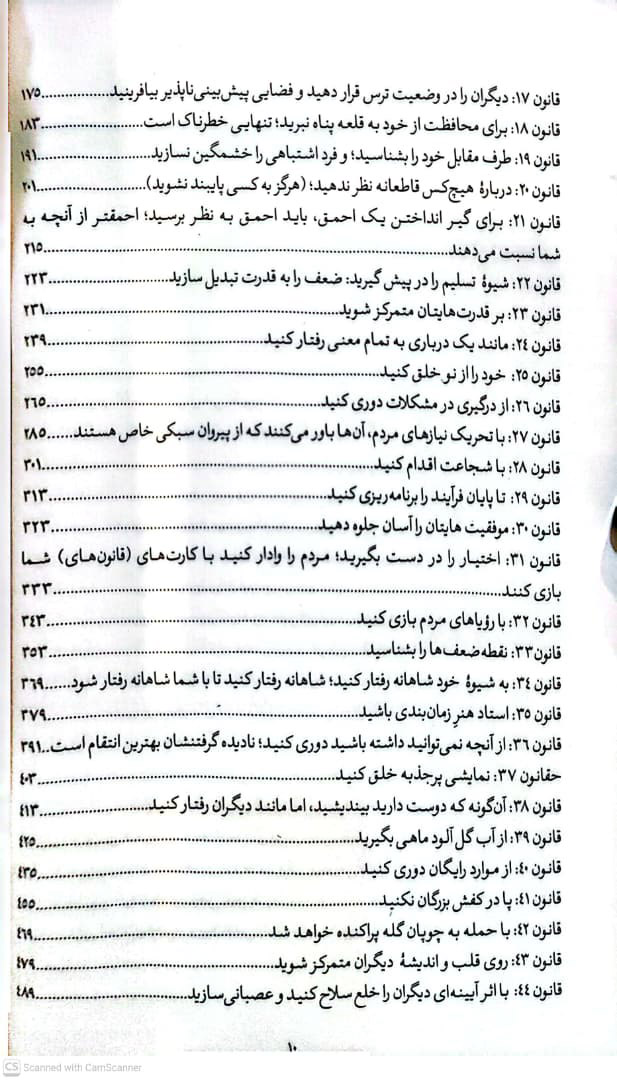 قانون ۱۷: دیگران را در وضعیت ترس قرار دهید و فضایی پیش‌بینی‌ناپذیر بیافرینید..................۱۷۵
قانون ۱۸: برای محافظت از خود به قلعه پناه نبرید؛ تنهایی خطرناک است..................۱۸۳
قانون ۱۹: طرف مقابل خود را بشناسید؛ و فرد اشتباهی را خشمگین نسازید..................۱۹۱
قانون ۲۰: دربارهٔ هیچ‌کس قاطعانه نظر ندهید؛ (هرگز به کسی پایبند نشوید)..................۲۰۱
قانون ۲۱: برای گیر انداختن یک احمق، باید احمق به نظر برسید؛ احمقتر از آنچه به
شما نسبت می‌دهند..................۲۱۵
قانون ۲۲: شیوهٔ تسلیم را در پیش گیرید: ضعف را به قدرت تبدیل سازید..................۲۲۳
قانون ۲۳: بر قدرت‌هایتان متمرکز شوید..................۲۳۱
قانون ۲٤: مانند یک درباری به تمام معنی رفتار کنید..................۲۳۹
قانون ۲۵: خود را از نو خلق کنید..................۲۵۵
قانون ۲۶: از درگیری در مشکلات دوری کنید..................۲۶۵
قانون ۲۷: با تحریک نیازهای مردم، آن‌ها باور می‌کنند که از پیروان سبکی خاص هستند......۲۸۵
قانون ۲۸: با شجاعت اقدام کنید..................۳۰۱
قانون ۲۹: تا پایان فرآیند را برنامه‌ریزی کنید..................۳۱۳
قانون ۳۰: موفقیت هایتان را آسان جلوه دهید..................۳۲۳
قانون ۳۱: اختیار را در دست بگیرید؛ مردم را وادار کنید با کارت‌های (قانون‌های) شما
بازی کنند..................۳۳۳
قانون ۳۲: با رؤیاهای مردم بازی کنید..................۳٤۳
قانون۳۳: نقطه‌ضعف‌ها را بشناسید..................۳۵۳
قانون ۳٤: به شیوهٔ خود شاهانه رفتار کنید؛ شاهانه رفتار کنید تا با شما شاهانه رفتار شود......۳۶۹
قانون ۳۵: استاد هنرِ زمان‌بندی باشید..................۳۷۹
قانون ۳۶: از آنچه نمی‌توانید داشته باشید دوری کنید؛ نادیده گرفتنشان بهترین انتقام است..۳۹۱
حقانون ۳۷: نمایشی پرجذبه خلق کنید..................٤۰۳
قانون ۳۸: آن‌گونه که دوست دارید بیندیشید، اما مانند دیگران رفتار کنید..................٤۱۳
قانون ۳۹: از آب گل آلود ماهی بگیرید..................٤۲۵
قانون ٤۰: از موارد رایگان دوری کنید..................٤۳۵
قانون ٤۱: پا در کفش بزرگان نکنید..................٤۵۵
قانون ٤۲: با حمله به چوپان گله پراکنده خواهد شد..................٤۶۹
قانون ٤۳: روی قلب و اندیشهٔ دیگران متمرکز شوید..................٤۷۹
قانون ٤٤: با اثر آیینه‌ای دیگران را خلع سلاح کنید و عصبانی سازید..................٤۸۹
۱۰
CS Scanned with CamScanner